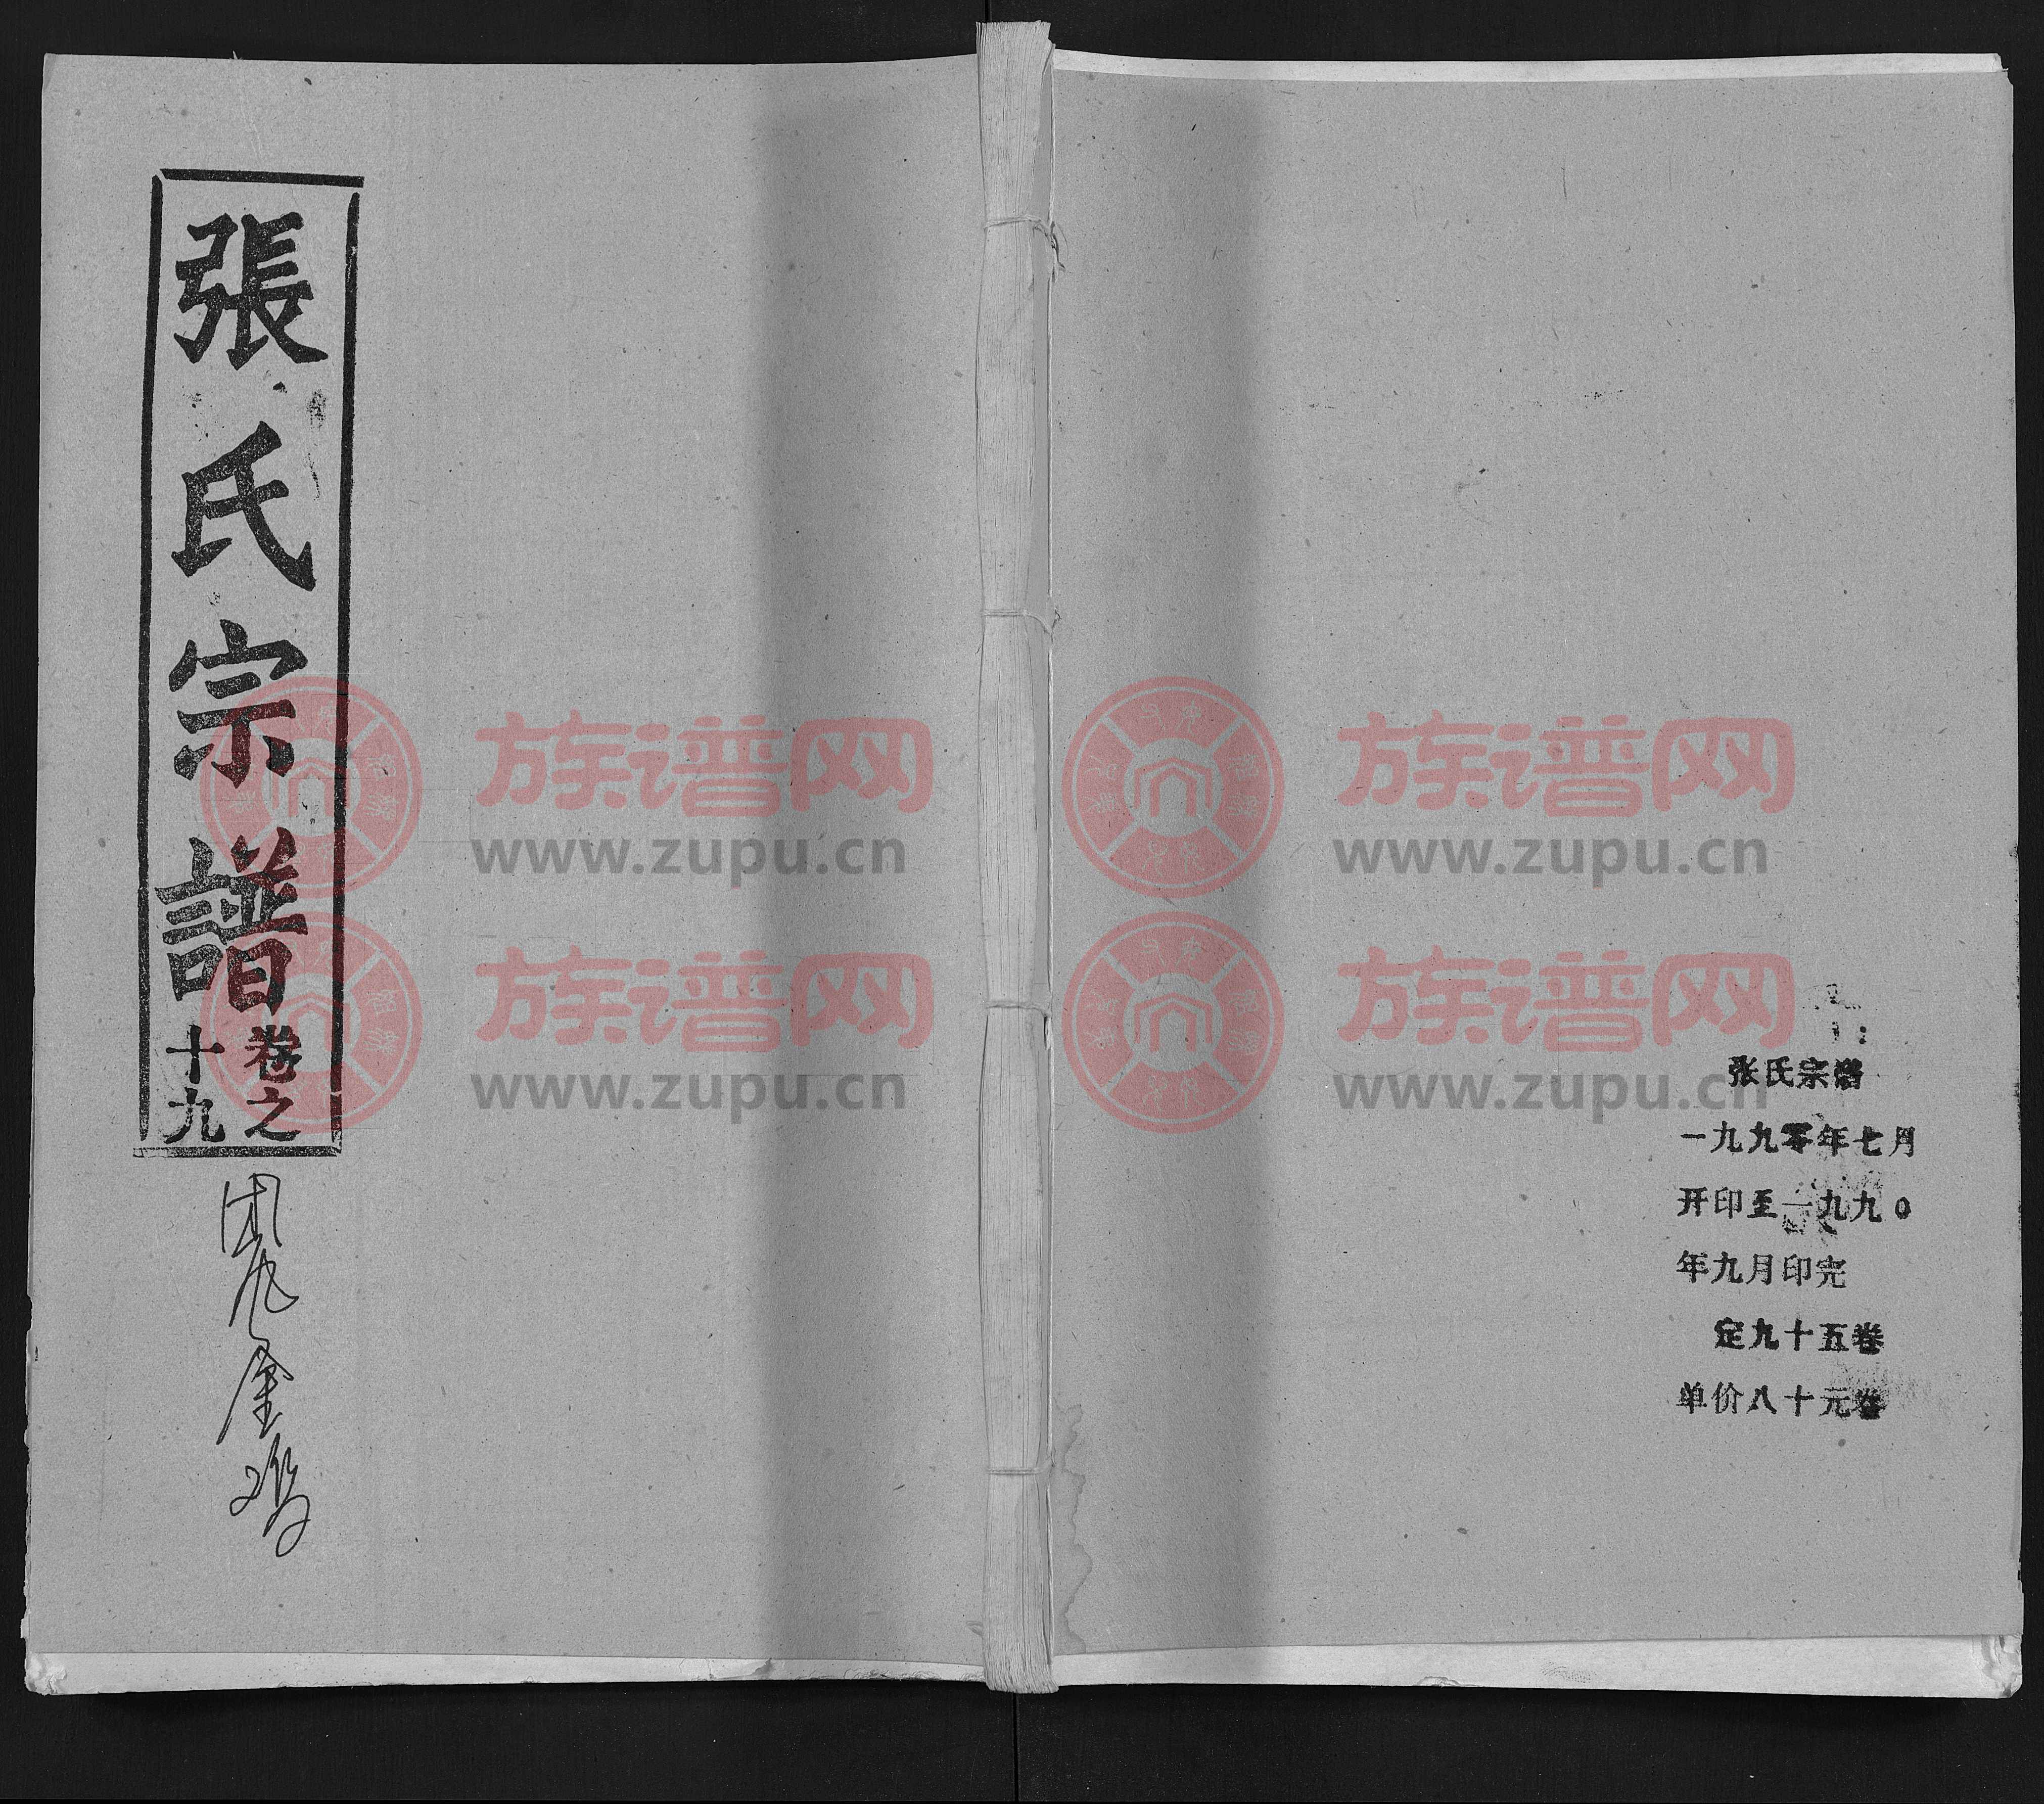 張氏宗譜
卷之
十九
张氏宗谱
一九九零年七月
开印至一九九0
年九月印完
定九十五卷
单价八十元卷
族谱网
www.zupu.cn
族谱网
www.zupu.cn
族谱网
www.zupu.cn
族谱网
www.zupu.cn